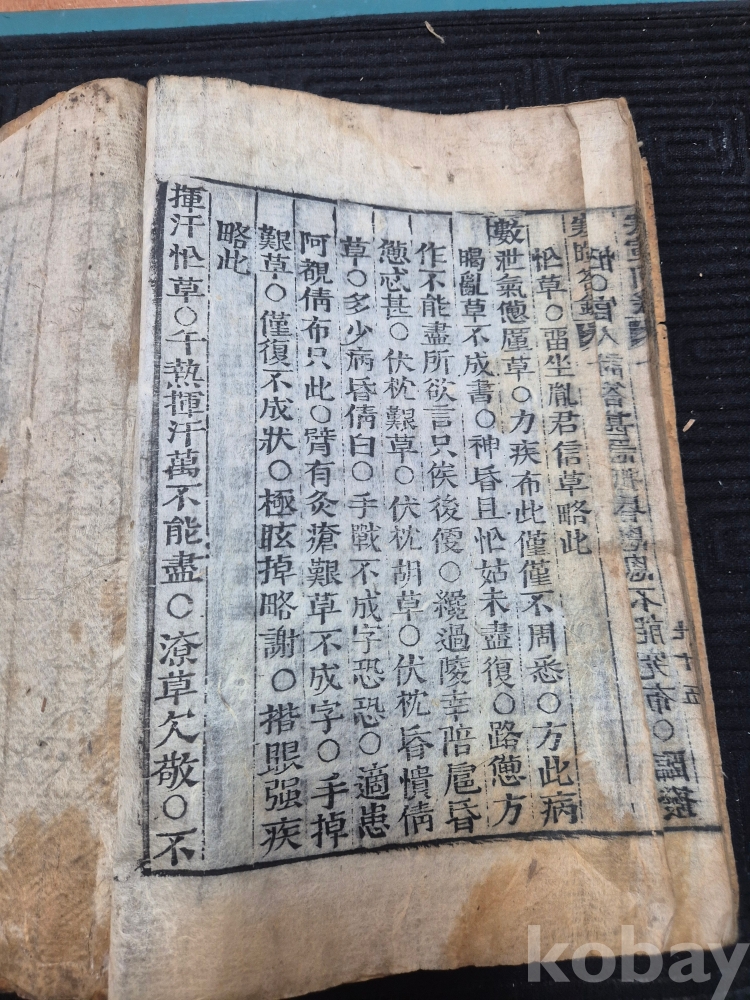 不能究布○臨撥
忙草○雷坐胤君信草略此
數泄氣憊厪草○力疾布此僅僅不周悉○方此病
暍亂草不成書○神昏且忙姑未盡復○路憊方
作不能盡所欲言只俟後便○纔過陵幸陪扈昏
憊忒甚○伏枕艱草○伏枕胡草○伏枕昏憒倩
草○多少病昏倩白○手戰不成字恐恐○適患
阿覩倩布只此○臂有灸瘡艱草不成字○手掉
艱草○僅復不成狀○極眩掉略謝○揩眼强疾
略此
揮汗忙草○午熱揮汗萬不能盡○潦草欠敬○不
kobay